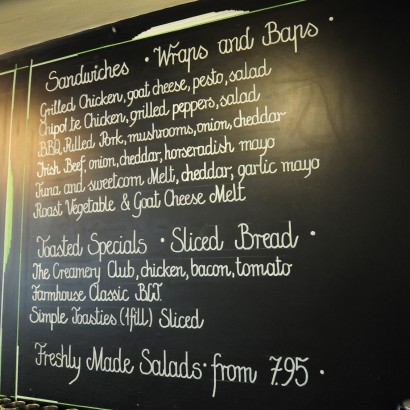 Sandwiches · Wraps and Baps ·
Grilled Chicken, goat cheese, pesto, salad
Chipol te Chicken, grilled peppers, salad
BBQ Pulled Pork, mushrooms, onion, cheddar
Irish Beef, onion, cheddar, horseradish mayo
Tuna and sweetcorn Melt, cheddar, garlic mayo
Roast Vegetable & Goat Cheese Melt
Toasted Specials · Sliced Bread ·
The Creamery Club, chicken, bacon, tomato
Farmhouse Classic BLT.
Simple Toasties (1 fill) Sliced
Freshly Made Salads · from 7.95 ·